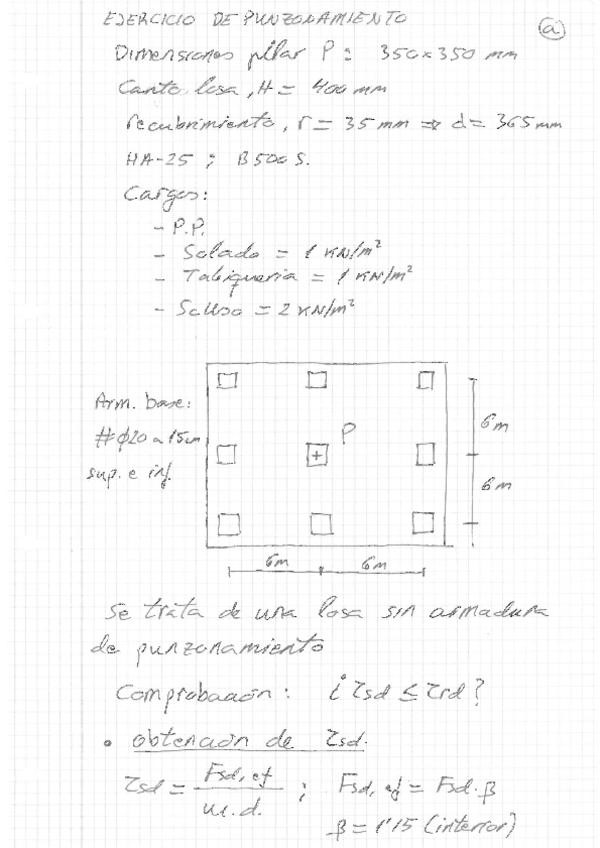 EJERCICIO DE PUNZONAMIENTO
(a)
Dimensiones pilar P = 350x350 mm
Canto losa, H = 400 mm
recubrimiento, r = 35 mm ⇒ d = 365 mm
HA-25 ; B500S.
Cargas:
- P.P.
- Solado = 1 KN/m²
- Tabiquería = 1 KN/m²
- SCUso = 2 KN/m²
Arm. base:
#φ20 a 15cm
sup. e inf.
P
6m
6m
6m 6m
Se trata de una losa sin armadura
de punzonamiento
Comprobación: ¿ τsd ≤ τrd ?
• obtención de τsd.
τsd = Fsd,ef / u1.d. ; Fsd,ef = Fsd.β
β = 1'15 (interior)